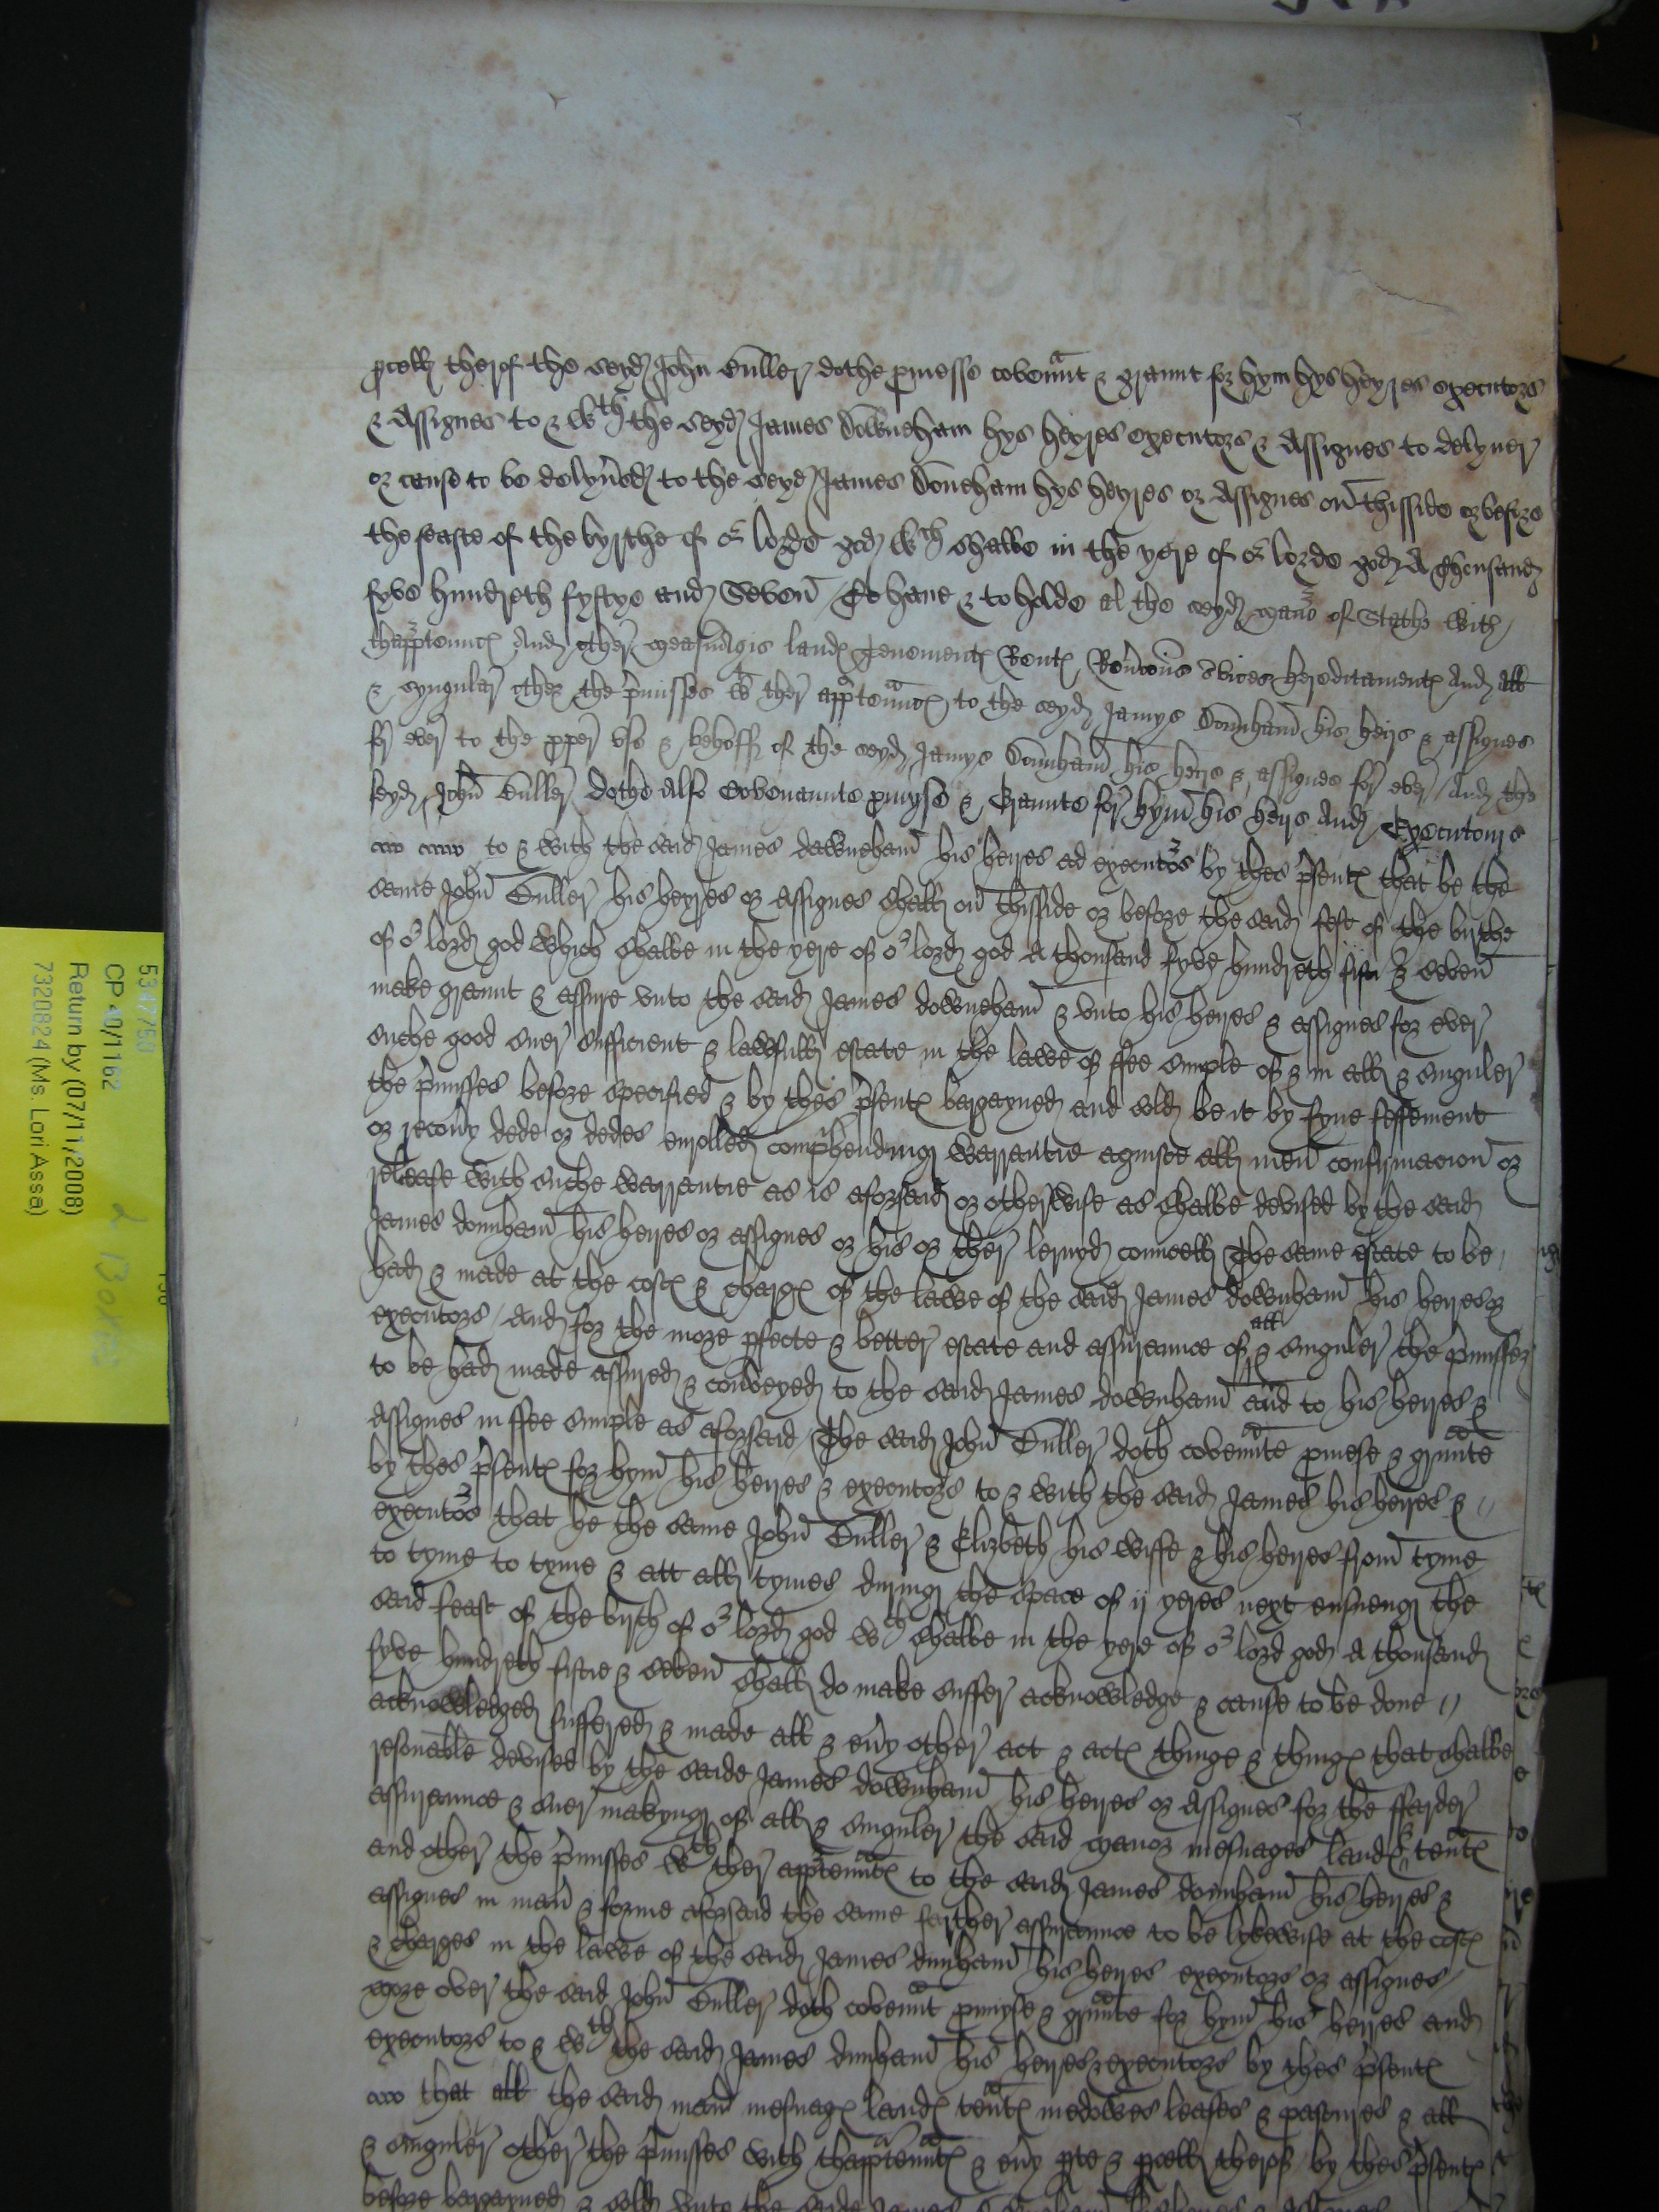 pcell therof the seyd John Buller dothe pmesse covennt & graunt for hym hys heyres executors
& Assignes to & wth the seyd James Downeham hys heyres executors & Assignes to delyuer
or cause to be delyued to the seyd James Doneham hys heyres or Assignes on thisside or before
the feaste of the byrthe of or lorde god wch shalbe in the yere of or lorde god A thousand
fyve hundreth fyftye and Seven To haue & to holde al the seyd manor of Stathe with
thapptennc And other measuagis land tenement Rent Revcons svices hereditament And all
& syngular other the pmisses wt ther apptennc to the seyd Jamys Dounham his heirs & assignes
for ever to the pper vse & behoff of the seyd Jamys Dounham his heirs & assignes for ever And the
seyd John Buller dothe Also Covenannte pmyse & Graunte for hym his heirs And Executours
to & with the said James dawneham his heires ad executors by thes psent that he the
same John Buller his heyres or assignes shall on thisside or before the said fest of the birthe
of or lord god which shalbe in the yere of or lord god A thousand fyve hundreth & seven
make graunt & assure vnto the said James downeham & vnto his heires & assignes for ever
suche good suer sufficient & lawfull estate in the lawe of ffee simple of & in all & singuler
the pmisses before specified & by thes psent bargayned and sold be it by fyne feffement
or recouy dede or dedes enrolled comphending warrantie agaisnte all men confirmacion or
release with suche warrantie as is aforsaid or otherwise as shalbe devised by the said
James dounham his heires or assignes or his or ther lernyd councell The same estate to be
had & made at the cost & charg of the lawe of the said James downham his heires or
executors And for the more pfecte & better estate and assurannce of all & singuler the pmisses
to be had made assured & conveyed to the said James downham and to his heires &
Assignes in ffee simple as aforsaid The said John Buller doth covennte pmese & grnnte
by thes psent for hym his heires & executors to & with the said James his heires &
executors that he the same John Buller & Elizbeth his wiffe & his heires from tyme
to tyme to tyme & att all tymes during the space of ij yeres next ensueng the
said feast of the birth of or lord god wch shalbe in the yere of or lord god A thousand
fyve hundreth fiftie & seven shall do make suffer acknowledge & cause to be done
acknowledged suffered & made all & euy other act & act thinge & thing that shalbe
resonable devised by the saide James downham his heires or Assignes for the ffarder
assurannce & suer makyng of all & singuler the said manor mesuages land tent
and other the pmisses wth ther apptennt to the said James dounham his heires &
assignes in man & forme aforsaid the same farther assurannce to be lykewise at the cost
& charges in the lawe of the said James dunham his heires executors or assignes
more over the said John Buller doth covennt pmyse & grnnte for hym his heires and
executors to & wth the said James dunham his heires & executors by thes psent
that all the said man mesuag land tent medowes leases & pastures & all
& singuler other the pmisses with thapptennt & euy pte & pcell therof by thes psent
before bargayned & sold vnto the saide James
534/750
CP 40/1162
Return by (07/11/2008)
7320824 (Ms. Lori Assa)